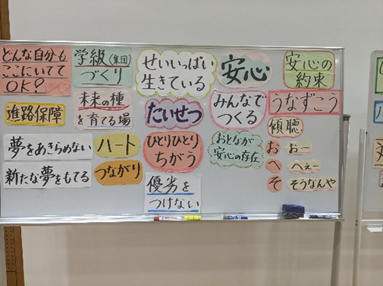 どんな自分も
ここにいてて
OK!
学級(集団)
づくり
せいいっぱい
生きている
安心
安心の
約束
進路保障
未来の種
を育てる場
たいせつ
みんなで
つくる
うなずこう
傾聴
夢をあきらめない
新たな夢をもてる
ハート
つながり
ひとりひとり
ちがう
おとなが
安心の存在
お おー
へ へぇー
そ そうなんや
優劣を
つけない